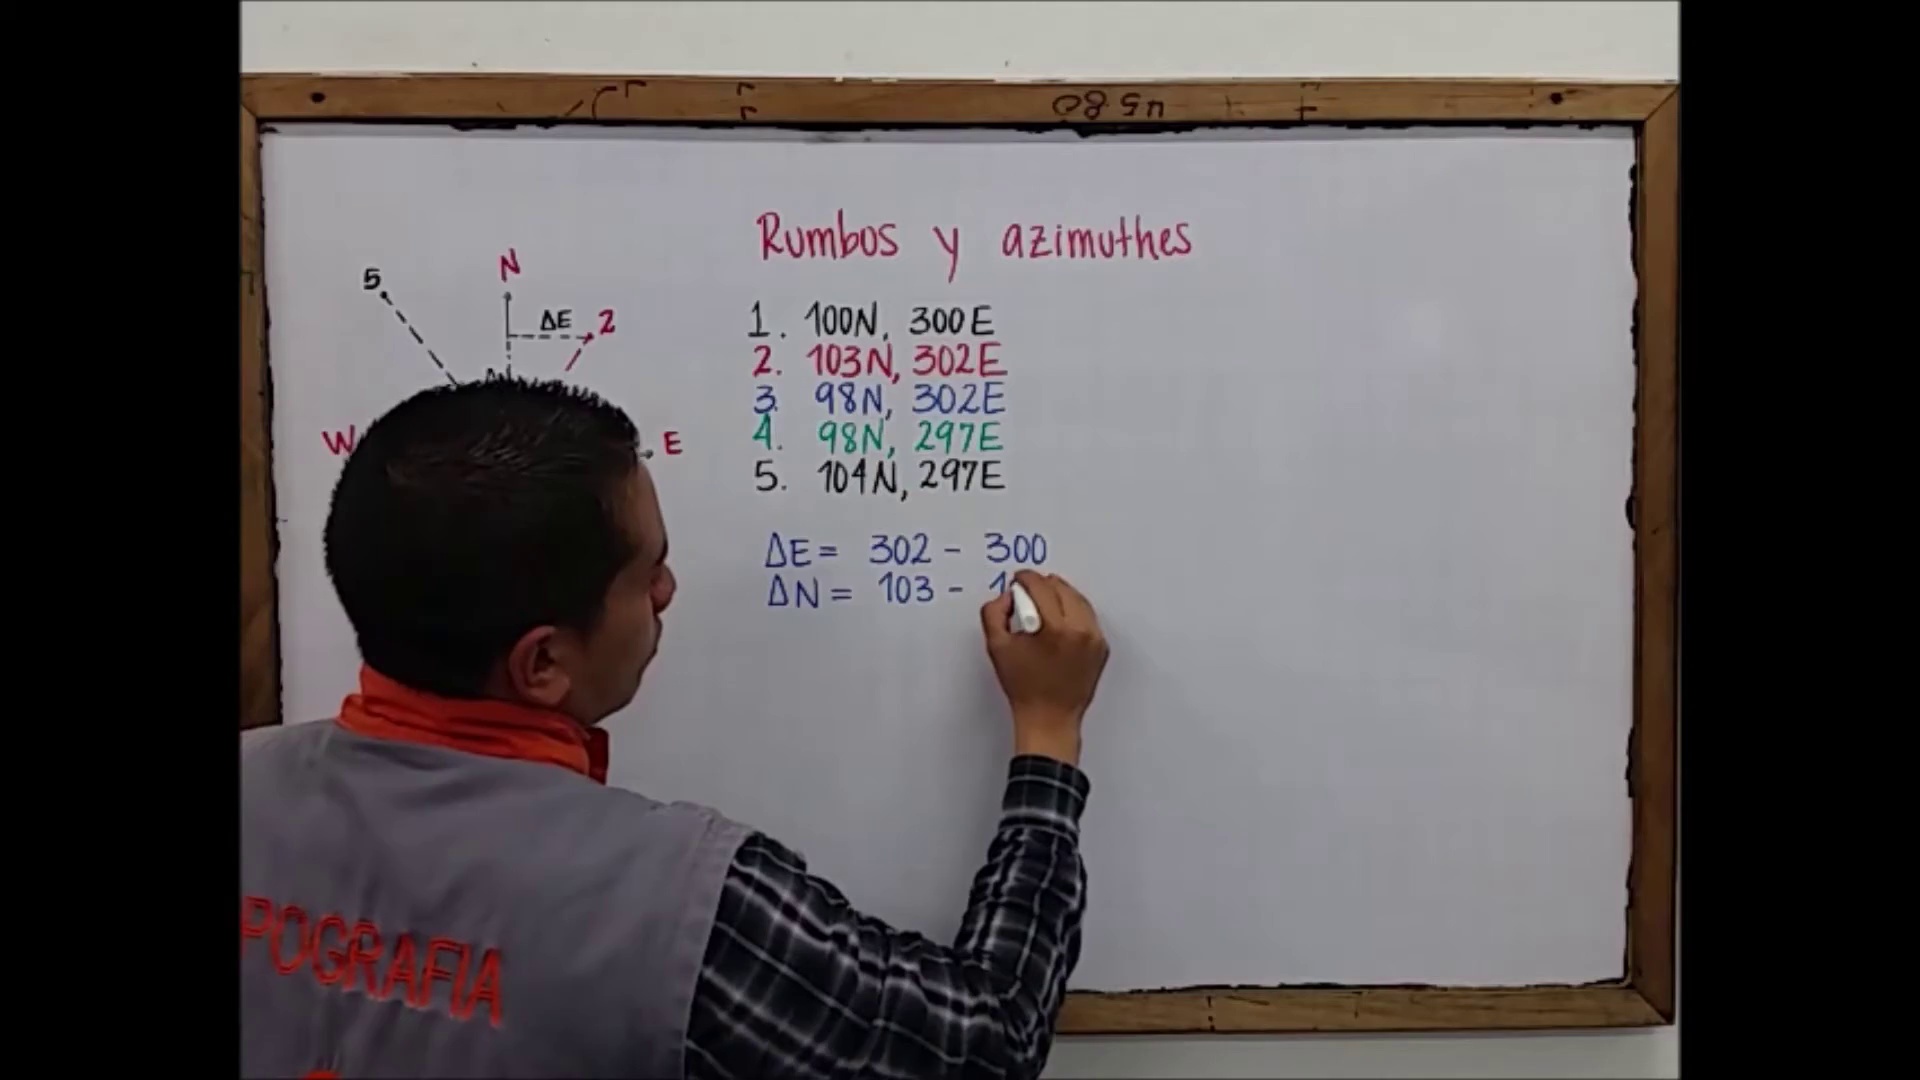 45.80
Rumbos y azimuthes
N
5
ΔE
2
W
E
1. 100N, 300E
2. 103N, 302E
3. 98N, 302E
4. 98N, 297E
5. 104N, 297E
ΔE = 302 - 300
ΔN = 103 - 1
POGRAFIA